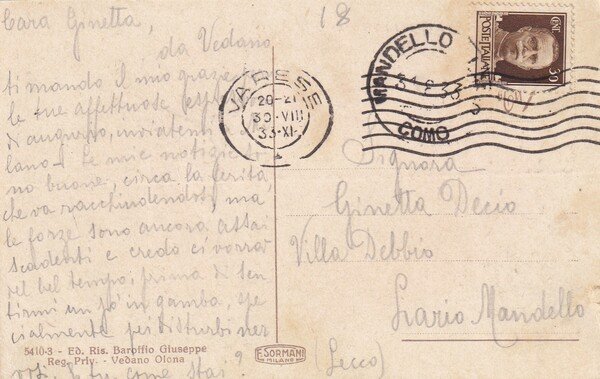 18
Cara Ginetta,
da Vedano
ti mando il mio grazie
le tue affettuose
di augurio, 
lano. Le mie notizie
no buone, circa la ferita
che va racchiudendosi, ma
le forze sono ancora assai
scadenti e credo ci vorrà
del bel tempo, prima di sen-
tirmi un po' in gamba, spe-
cialmente pei disturbi ner
come stai?
5410-3 - Ed. Ris. Baroffio Giuseppe
Reg. Priv. - Vedano Olona
F. SORMANI
MILANO
VARESE
20-21
30·VIII
33-XI
MANDELLO
COMO
POSTE ITALIANE
CENT 30
Signora
Ginetta Decio
Villa Debbio
Lario Mandello
(Lecco)